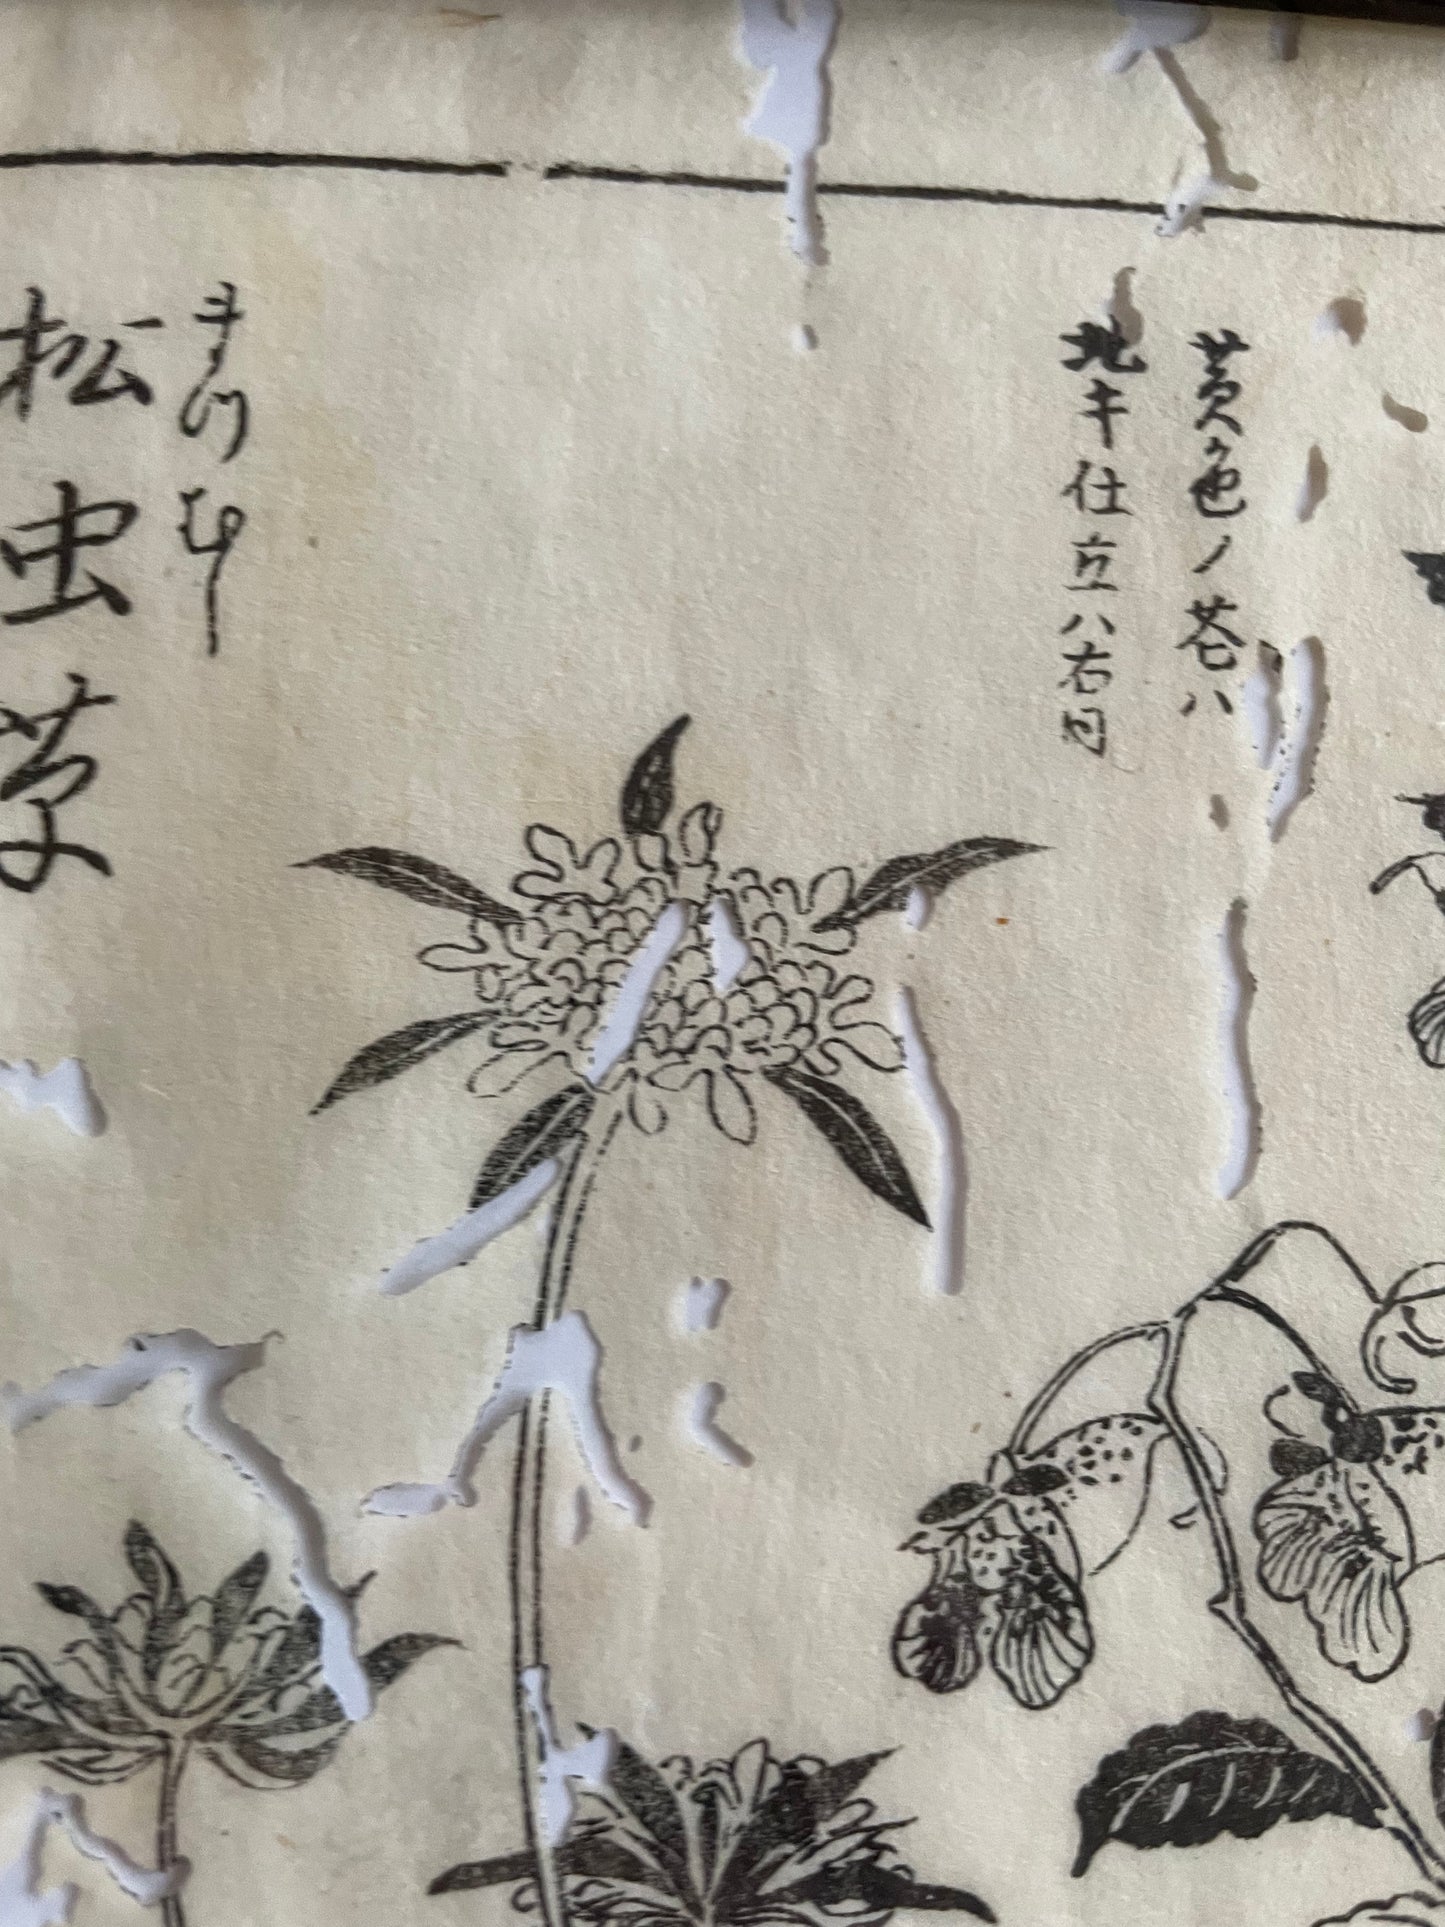 黄色ノ花ハ
キ仕立ハ右同
まつむし
松虫草